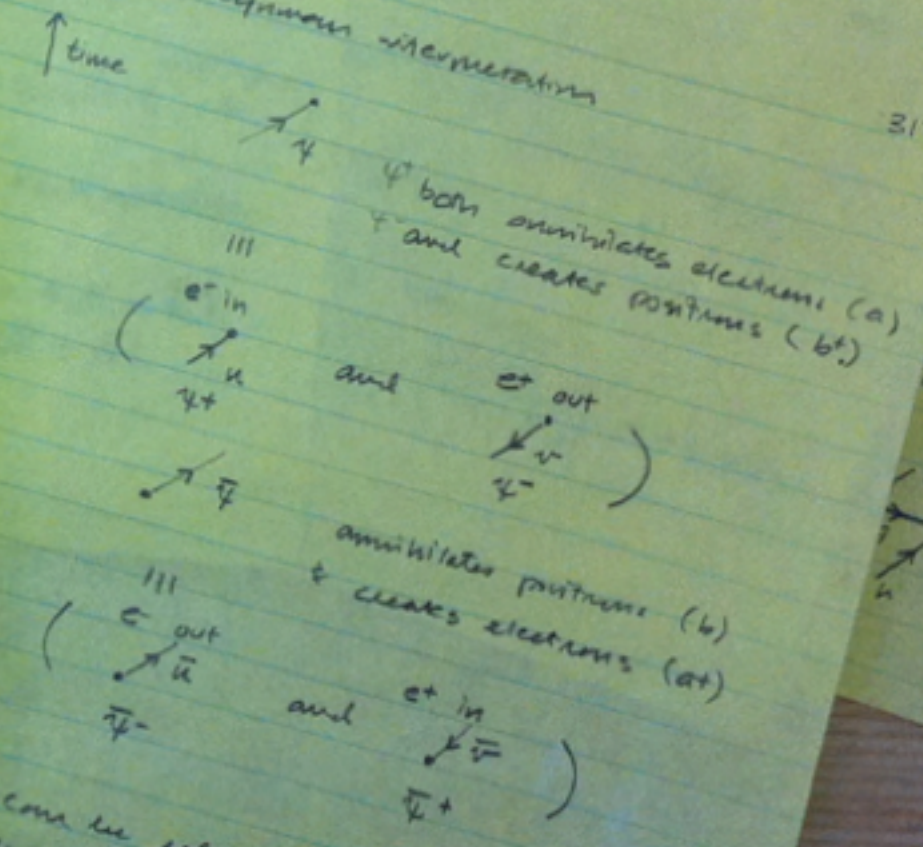 interpretation
↑ time
31
ψ
ψ both annihilates electrons (a)
and creates positrons (b+)
≡
e- in
( u and e+ out v )
ψ+ ψ-
ψ̄
annihilates positrons (b)
& creates electrons (a+)
≡
( e- out ū and e+ in v̄ )
ψ̄- ψ̄+
can be
u